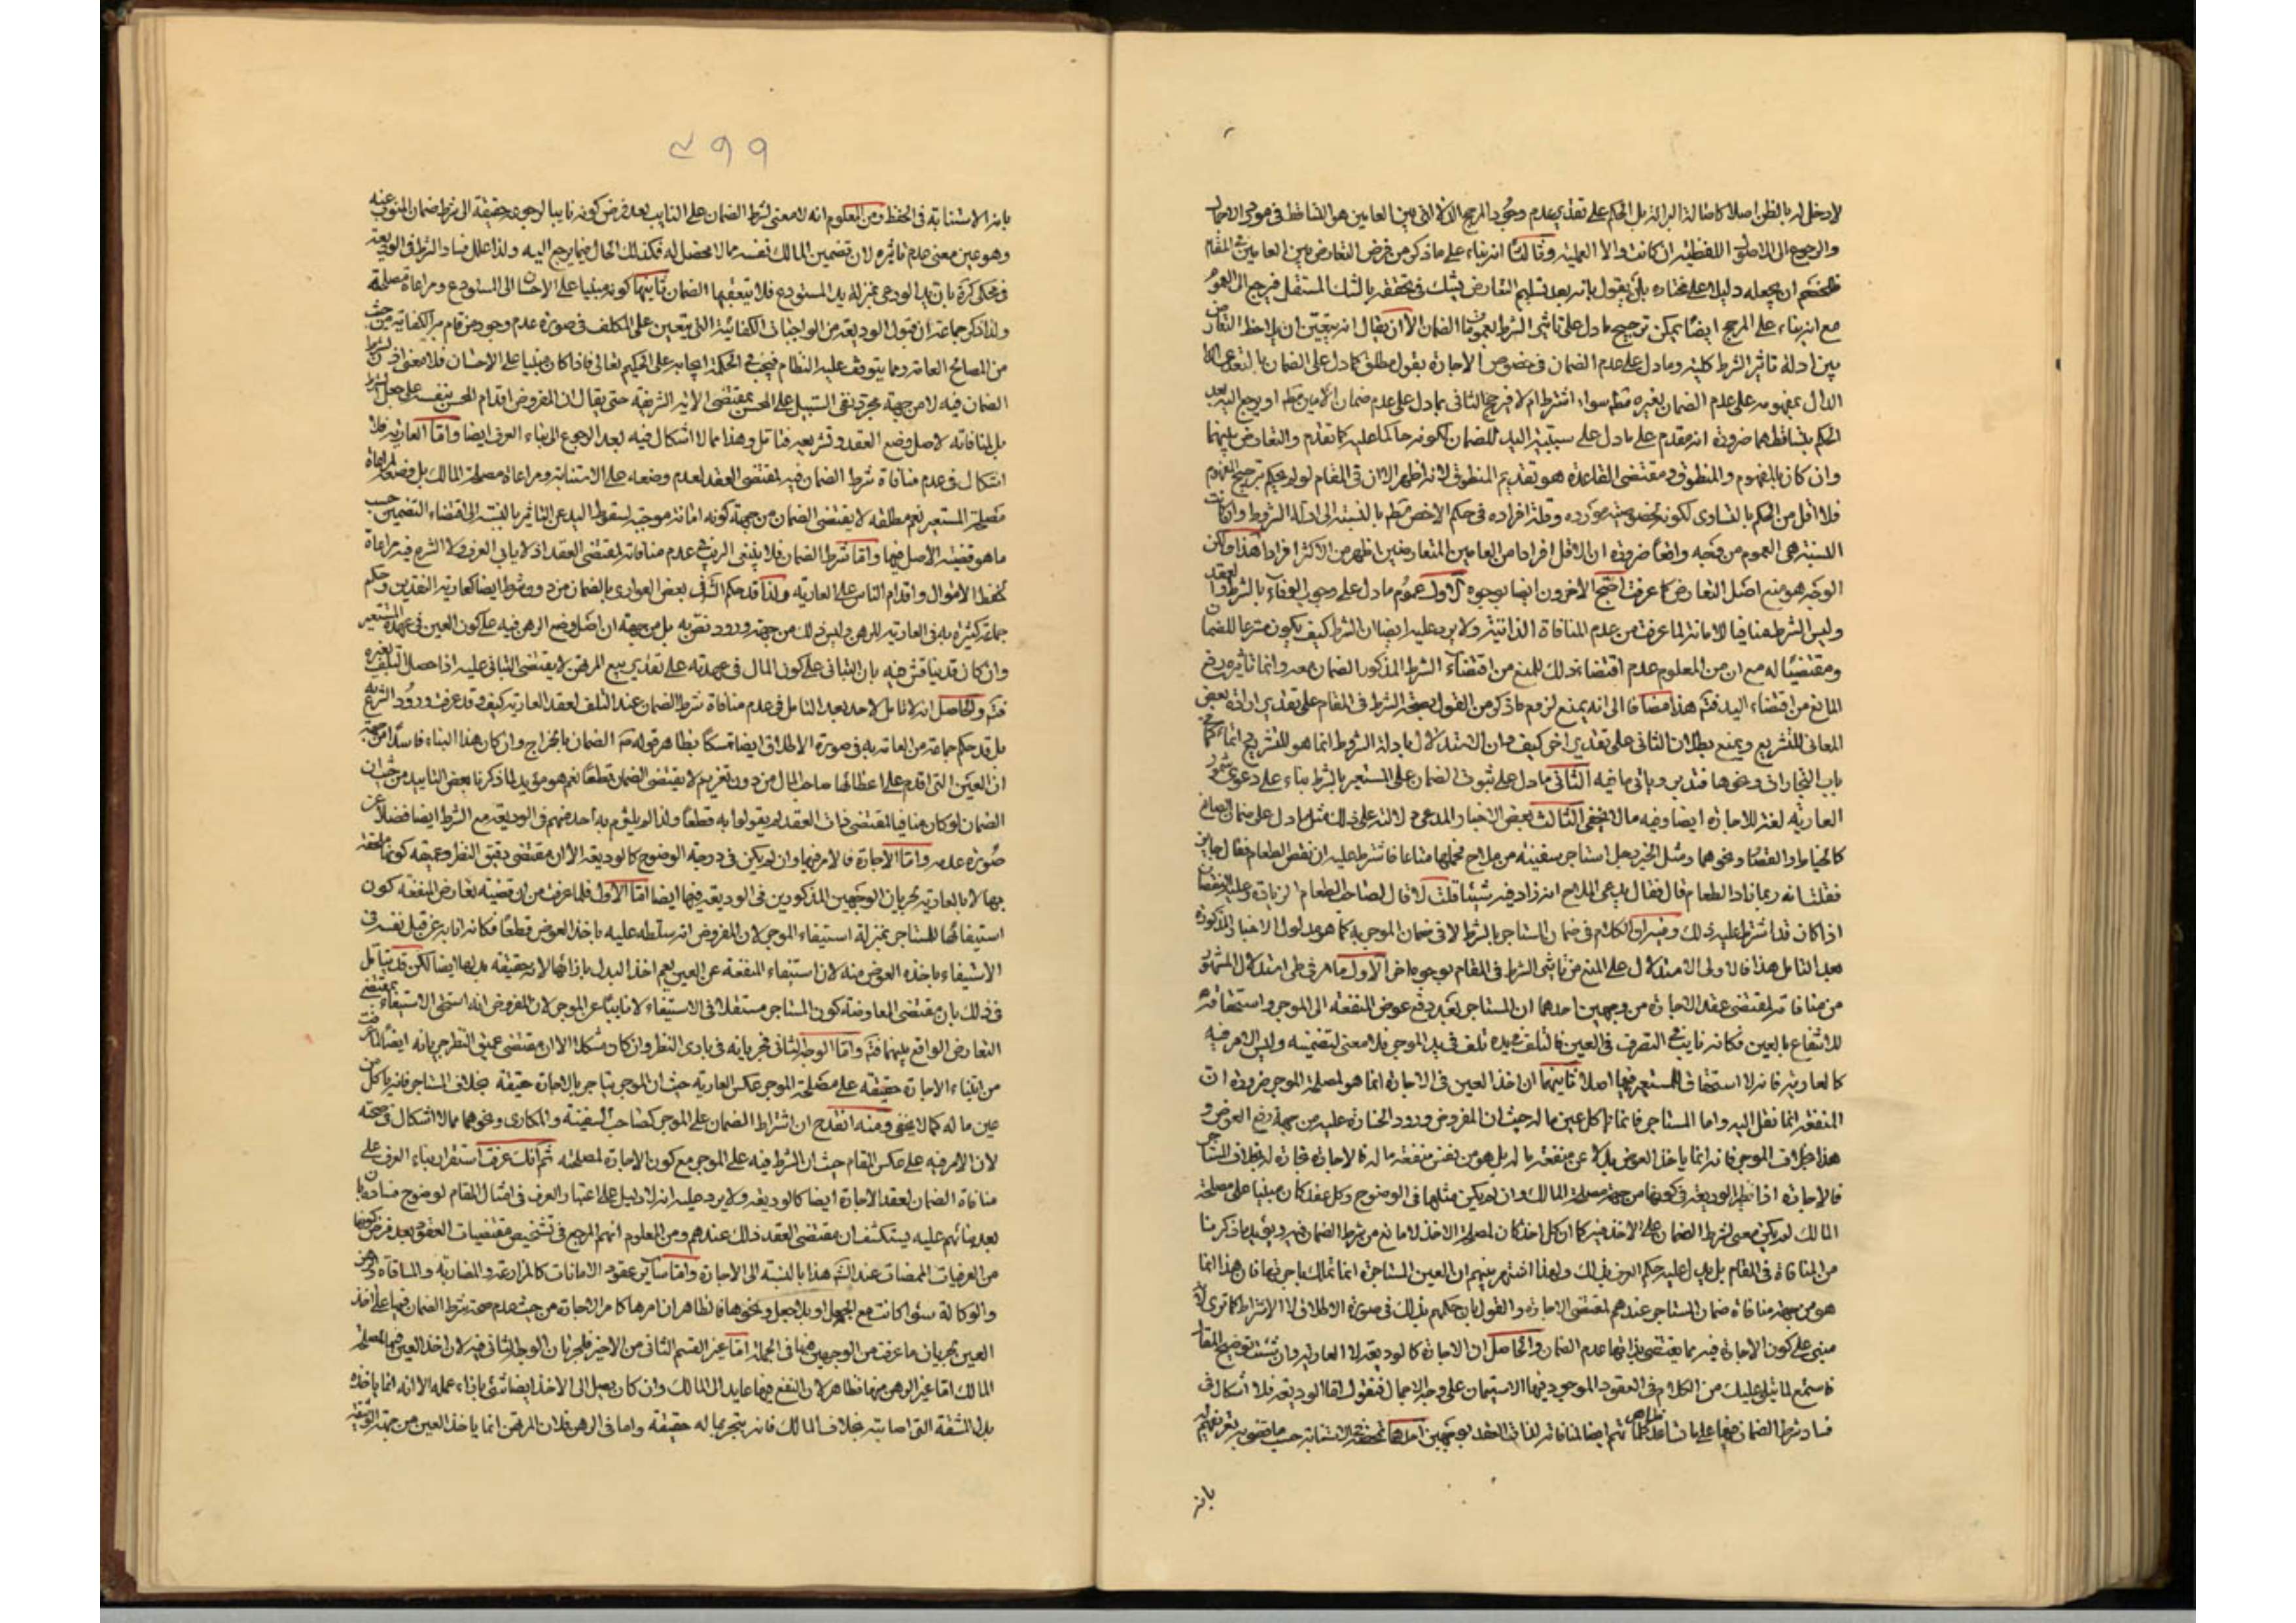 لا دخل له بالظن اصلا كاصالة البرائة بل الحكم على تقدير عدم وجود المرجح الدلالتى بين العامين هو التساقط فى مورد
والرجوع الى الاصول اللفظية ان كانت والا العملية وثالثا انه بناء على ما ذكر من فرض التعارض بين العامين فى المقام
ان يجعله دليلا على مختاره بان يقول بانه بعد تسليم التعارض يشك فى تحققه بالشك المستقل فيرجع الى العموم
مع انه بناء على المرجح ايضا يمكن ترجيح ما دل على تاثير الشرط بعموم الضمان الا ان يقال انه يتعين ان يلاحظ التعارض
بين ادلة تاثير الشرط كلية وما دل على عدم الضمان فى خصوص الاجارة بقول مطلق كما دل على الضمان بالتعدى
الدال بمفهومه على عدم الضمان بغيره مط سواء اشترط ام لا فيرجح الثانى بما دل على عدم ضمان الامين مط او يرجع اليه بعد
الحكم بتساقطهما ضرورة انه مقدم على ما دل على سببية اليد للضمان لكونه حاكما عليه كما تقدم والتعارض بينهما
وان كان بالمفهوم والمنطوق ومقتضى القاعدة هو تقديم المنطوق لانه اظهر الا ان فى المقام لو لم يحكم بترجيح المفهوم
فلا اقل من الحكم بالتساوى لكونه بخصوصية مورده وقلة افراده فى حكم الاخص مط بالنسبة الى ادلة الشروط وان كانت
النسبة هى العموم من وجه واقعا ضرورة ان الاقل افرادا من العامين المتعارضين اظهر من الاكثر افرادا هذا ولكن
الوجه هو منع اصل التعارض كما عرفت احتج الاخرون ايضا بوجوه الاول عموم ما دل على وجوب الوفاء بالشرط والعقد
وليس الشرط منافيا للامانة لما عرفت من عدم المنافاة الذاتية ولا يرد عليه ايضا ان الشرط كيف يكون مشرعا للضمان
ومقتضيا له مع ان من المعلوم عدم اقتضائه ذلك للمنع من اقتضاء الشرط المذكور الضمان معه وانما تاثيره رفع
المانع من اقتضاء اليد فتم هذا مضافا الى انه يمنع لزوم ما ذكر من القول بصحة الشرط فى المقام على تقدير ارادة بعض
المعانى للتشريع ويمنع بطلان التالى على تقدير اخر كيف وان الاستدلال بادلة الشروط انما هو للتشريح
باب التجارات ونحوها فتدبر وياتى ما فيه الثانى ما دل على ثبوت الضمان على المستعير بالشرط بناء على دعوى
العارية لغة للاجارة ايضا وفيه ما لا يخفى الثالث بعض الاخبار المدعى دلالته على ذلك مثل ما دل على ضمان الصانع
كالخياط والقصار ونحوهما ومثل الخبر رجل استاجر سفينة من ملاح فحملها متاعا فاشترط عليه ان نقص الطعام فقال جايز
فقلت انه ربما زاد الطعام قال فقال يدعى الملاح انه زاد فيه شيئا قلت لا قال لصاحب الطعام الزيادة وعليه النقصان
اذا كان قد اشترط عليه ذلك وفيه ان الكلام فى ضمان المستاجر بالشرط لا فى ضمان الموجر به كما هو مدلول الاخبار المذكورة
بعد التامل هذا فالاولى الاستدلال على المنع من تاثير الشرط فى المقام بوجوه اخر الاول ما مر فى طى استدلال المشهور
من منافاته لمقتضى عقد الاجارة من وجهين احدهما ان المستاجر بعد دفع عوض المنفعة الى الموجر واستحقاقه
للانتفاع بالعين فكانه نايب فى التصرف فى العين فالتلف فى يده تلف فى يد الموجر فلا معنى لتضمينه وليس الامر فيه
كالعارية فانه لا استحقاق للمستعير فيها اصلا ثانيهما ان اخذ العين فى الاجارة انما هو لمصلحة الموجر ضرورة ان
المنفعة انما نقل اليه واما المستاجر فانما ياكل عين ماله حيث ان المفروض ورود الخسارة عليه من جهة دفع العوض و
هذا بخلاف الموجر فانه انما ياخذ العوض بدلا عن منفعة ماله بل هو من نفس منفعة ماله فالاجارة تجارة له بخلاف المستاجر
فالاجارة اذا نظير الوديعة فى كونها من جهة مصلحة المالك وان لم يكن مثلها فى الوضوح وكل عقد كان مبنيا على مصلحة
المالك لم يكن معنى لشرط الضمان على الاخذ فيه كما ان كل اخذ كان لمصلحة الاخذ لا مانع من شرط الضمان فيه ويؤيد ما ذكرنا
من المنافاة فى المقام بل يدل عليه حكم العرف بذلك ولهذا اشتهر بينهم ان العين المستاجرة انما تملك باجرتها فان هذا انما
هو من جهة منافاة ضمان المستاجر عندهم لمقتضى الاجارة والقول بان حكمهم بذلك فى صورة الاطلاق لا الاشتراط كما ترى
مبنى على كون الاجارة فيه بما يقتضى بذاتها عدم الضمان والحاصل ان الاجارة كالوديعة لا العارية وان شئت توضيح المقال
فاستمع لما يتلى عليك من الكلام فى العقود الموجود فيها الاستيمان على وجه الاجمال فنقول اما الوديعة فلا اشكال فى
فساد شرط الضمان فيها على ما ساعد ثم ايضا لمنافاته لذات العقد بوجهين احدهما الاستنابة حسبما
بانه
٤٩٩
بانه الاستنابة فى الحفظ ومن المعلوم انه لا معنى لشرط الضمان على النايب بعد فرض كونه نايبا لرجوعه حقيقة الى شرط ضمان المنوب عنه
وهو عين معنى عدم تاثيره لان تضمين المالك نفسه مما لا محصل له فكذلك الحال فيما يرجع اليه ولذا علل فساد الشرط فى الوديعة
فى محكى كرة بان يد الودعى بمنزلة يد المستودع فلا يتعقبها الضمان ثانيهما كونه مبنيا على الاحسان الى المستودع ومراعاة مصلحته
ولذا ذكر جماعة ان قبول الوديعة من الواجبات الكفائية التى يتعين على المكلف فى صورة عدم وجود من قام به الكفاية من حيث
من المصالح العامة ومما يتوقف عليه النظام فيجب فى الحكمة ايجابه على الحكيم تعالى فاذا كان مبنيا على الاحسان فلا معنى اذا لشرط
الضمان فيه لا من جهة مجرد نفى السبيل على المحسن بمقتضى الاية الشريفة حتى يقال ان المفروض اقدام المحسن بنفسه على جعل الشرط
بل لمنافاته لاصل وضع العقد وتشريعه فتامل وهذا مما لا اشكال فيه بعد الرجوع الى بناء العرف ايضا واما العارية فلا
اشكال فى عدم منافاة شرط الضمان فيه لمقتضى العقد لعدم وضعه على الاستنابة ومراعاة مصلحة المالك بل وضعه لمراعاة
مصلحة المستعير نعم مطلقه لا يقتضى الضمان من جهة كونه امانة موجبة لسقوط اليد عن التاثير بالنسبة الى اقتضاء التضمين حسب
ما هو قضية الاصل فيها واما شرط الضمان فلا ينبغى الريب فى عدم منافاته لمقتضى العقد اذ لا يابى العرف ولا الشرع فيه مراعاة
لحفظ الاموال واقدام الناس على العارية ولذا قد حكم الشرع فى بعض العوارى بالضمان من دون شرط ايضا كعارية النقدين وحكم
جماعة كثيرة به فى العارية للرهن وليس ذلك من جهة ورود نص به بل من جهة ان اصل وضع الرهن فيه على كون العين فى عهدة المستعير
وان كان قد يناقش فيه بان التبانى على كون المال فى عهدته على تقدير بيع المرتهن لا يقتضى التبانى عليه اذا حصل التلف بغيره
فتم والحاصل انه لا تامل لاحد بعد التامل فى عدم منافاة شرط الضمان عند التلف لعقد العارية كيف وقد عرفت ورود الشرع به
بل قد حكم جماعة من العامة به فى صورة الاطلاق ايضا تمسكا بظاهر قوله ص الضمان بالخراج وان كان هذا البناء فاسدا من جهة
ان العين التى اقدم على اعطائها صاحب المال من دون تغريم لا يقتضى الضمان قطعا نعم هو مؤيد لما ذكرنا بعض التاييد من حيث ان
الضمان لو كان منافيا لمقتضى ذات العقد لم يقولوا به قطعا ولذا لم يلتزم به احد منهم فى الوديعة مع الشرط ايضا فضلا عن
صورة عدمه واما الاجارة فالامر فيها وان لم يكن فى درجة الوضوح كالوديعة الا ان مقتضى دقيق النظر وعميقه كونها ملحقة
بها لا بالعارية لجريان الوجهين المذكورين فى الوديعة فيها ايضا اما الاول فلما عرفت من ان قضية تعارض المنفعة كون
استيفائها للمستاجر بمنزلة استيفاء الموجر لان المفروض انه سلطه عليه باخذ العوض قطعا فكانه انابه عن قبل نفسه فى
الاستيفاء باخذه العوض منه لان استيفاء المنفعة عن العين يعم اخذ البدل بازائها لانه حقيقة بدلها ايضا لكن قد يتامل
فى ذلك بان مقتضى المعاوضة كون المستاجر مستقلا فى الاستيفاء لا نايبا عن الموجر لان المفروض انه استحق الاستيفاء بمقتضى
التعارض الواقع بينهما فتم واما الوجه الثانى فجريانه فى بادى النظر وان كان مشكلا الا ان مقتضى عميق النظر جريانه ايضا لما عرفت
من ابتناء الاجارة حقيقة على مصلحة الموجر عكس العارية حيث ان الموجر يتاجر بالاجارة حقيقة بخلاف المستاجر فانه ياكل من
عين ماله كما لا يخفى ومنه انقدح ان اشتراط الضمان على الموجر كصاحب السفينة والمكارى ونحوهما مما لا اشكال فى صحته
لان الامر فيه على عكس المقام حيث ان الشرط فيه على الموجر مع كون الاجارة لمصلحته ثم انك عرفت استقرار بناء العرف على
منافاة الضمان لعقد الاجارة ايضا كالوديعة ولا يرد عليه انه لا دليل على اعتبار العرف فى امثال المقام لوضوح فساده بان
بعد بنائهم عليه يستكشف ان مقتضى العقد ذلك عندهم ومن المعلوم انهم المرجع فى تشخيص مقتضيات العقود بعد فرض كونها
من العرفيات الممضات عند الشرع هذا بالنسبة الى الاجارة واما ساير عقود الامانات كالمزارعة والمضاربة والمساقاة والرهن
والوكالة سواء كانت مع الجعل او بلا جعل ونحوها فالظاهر ان امرها كامر الاجارة من حيث عدم صحة شرط الضمان فيها على اخذ
العين لجريان ما عرفت من الوجهين فيها فى الجملة اما غير القسم الثانى من الاخير فلجريان الوجه الثانى فيه لان اخذ العين فيها لمصلحة
المالك اما غير الرهن منها فظاهر لان النفع فيها عايد الى المالك وان كان يصل الى الاخذ ايضا شئ بازاء عمله الا انه انما ياخذه
بدل المشقة التى اصابته بخلاف المالك فانه يتجر بماله حقيقة واما فى الرهن فلان المرتهن انما ياخذ العين من جهة الوثيقة